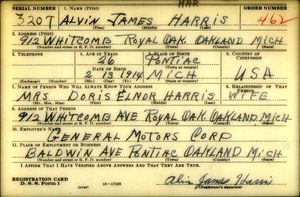 HAR
SERIAL NUMBER 1. Name (Print) ORDER NUMBER
3207 ALVIN JAMES HARRIS 462
2. Address (Print)
912 WHITCOMB ROYAL OAK OAKLAND MICH
3. Telephone 4. Age in Years 5. Place of Birth 6. Country of Citizenship
26 PONTIAC
Date of Birth
2 13 1914 MICH USA
7. Name of Person Who Will Always Know Your Address 8. Relationship of That Person
MRS DORIS ELNOR HARRIS WIFE
9. Address of That Person
912 WHITCOMB AVE ROYAL OAK OAKLAND MICH
10. Employer's Name
GENERAL MOTORS CORP
11. Place of Employment or Business
BALDWIN AVE PONTIAC OAKLAND MICH
I Affirm That I Have Verified Above Answers and That They Are True.
REGISTRATION CARD
D. S. S. Form 1
Alvin James Harris